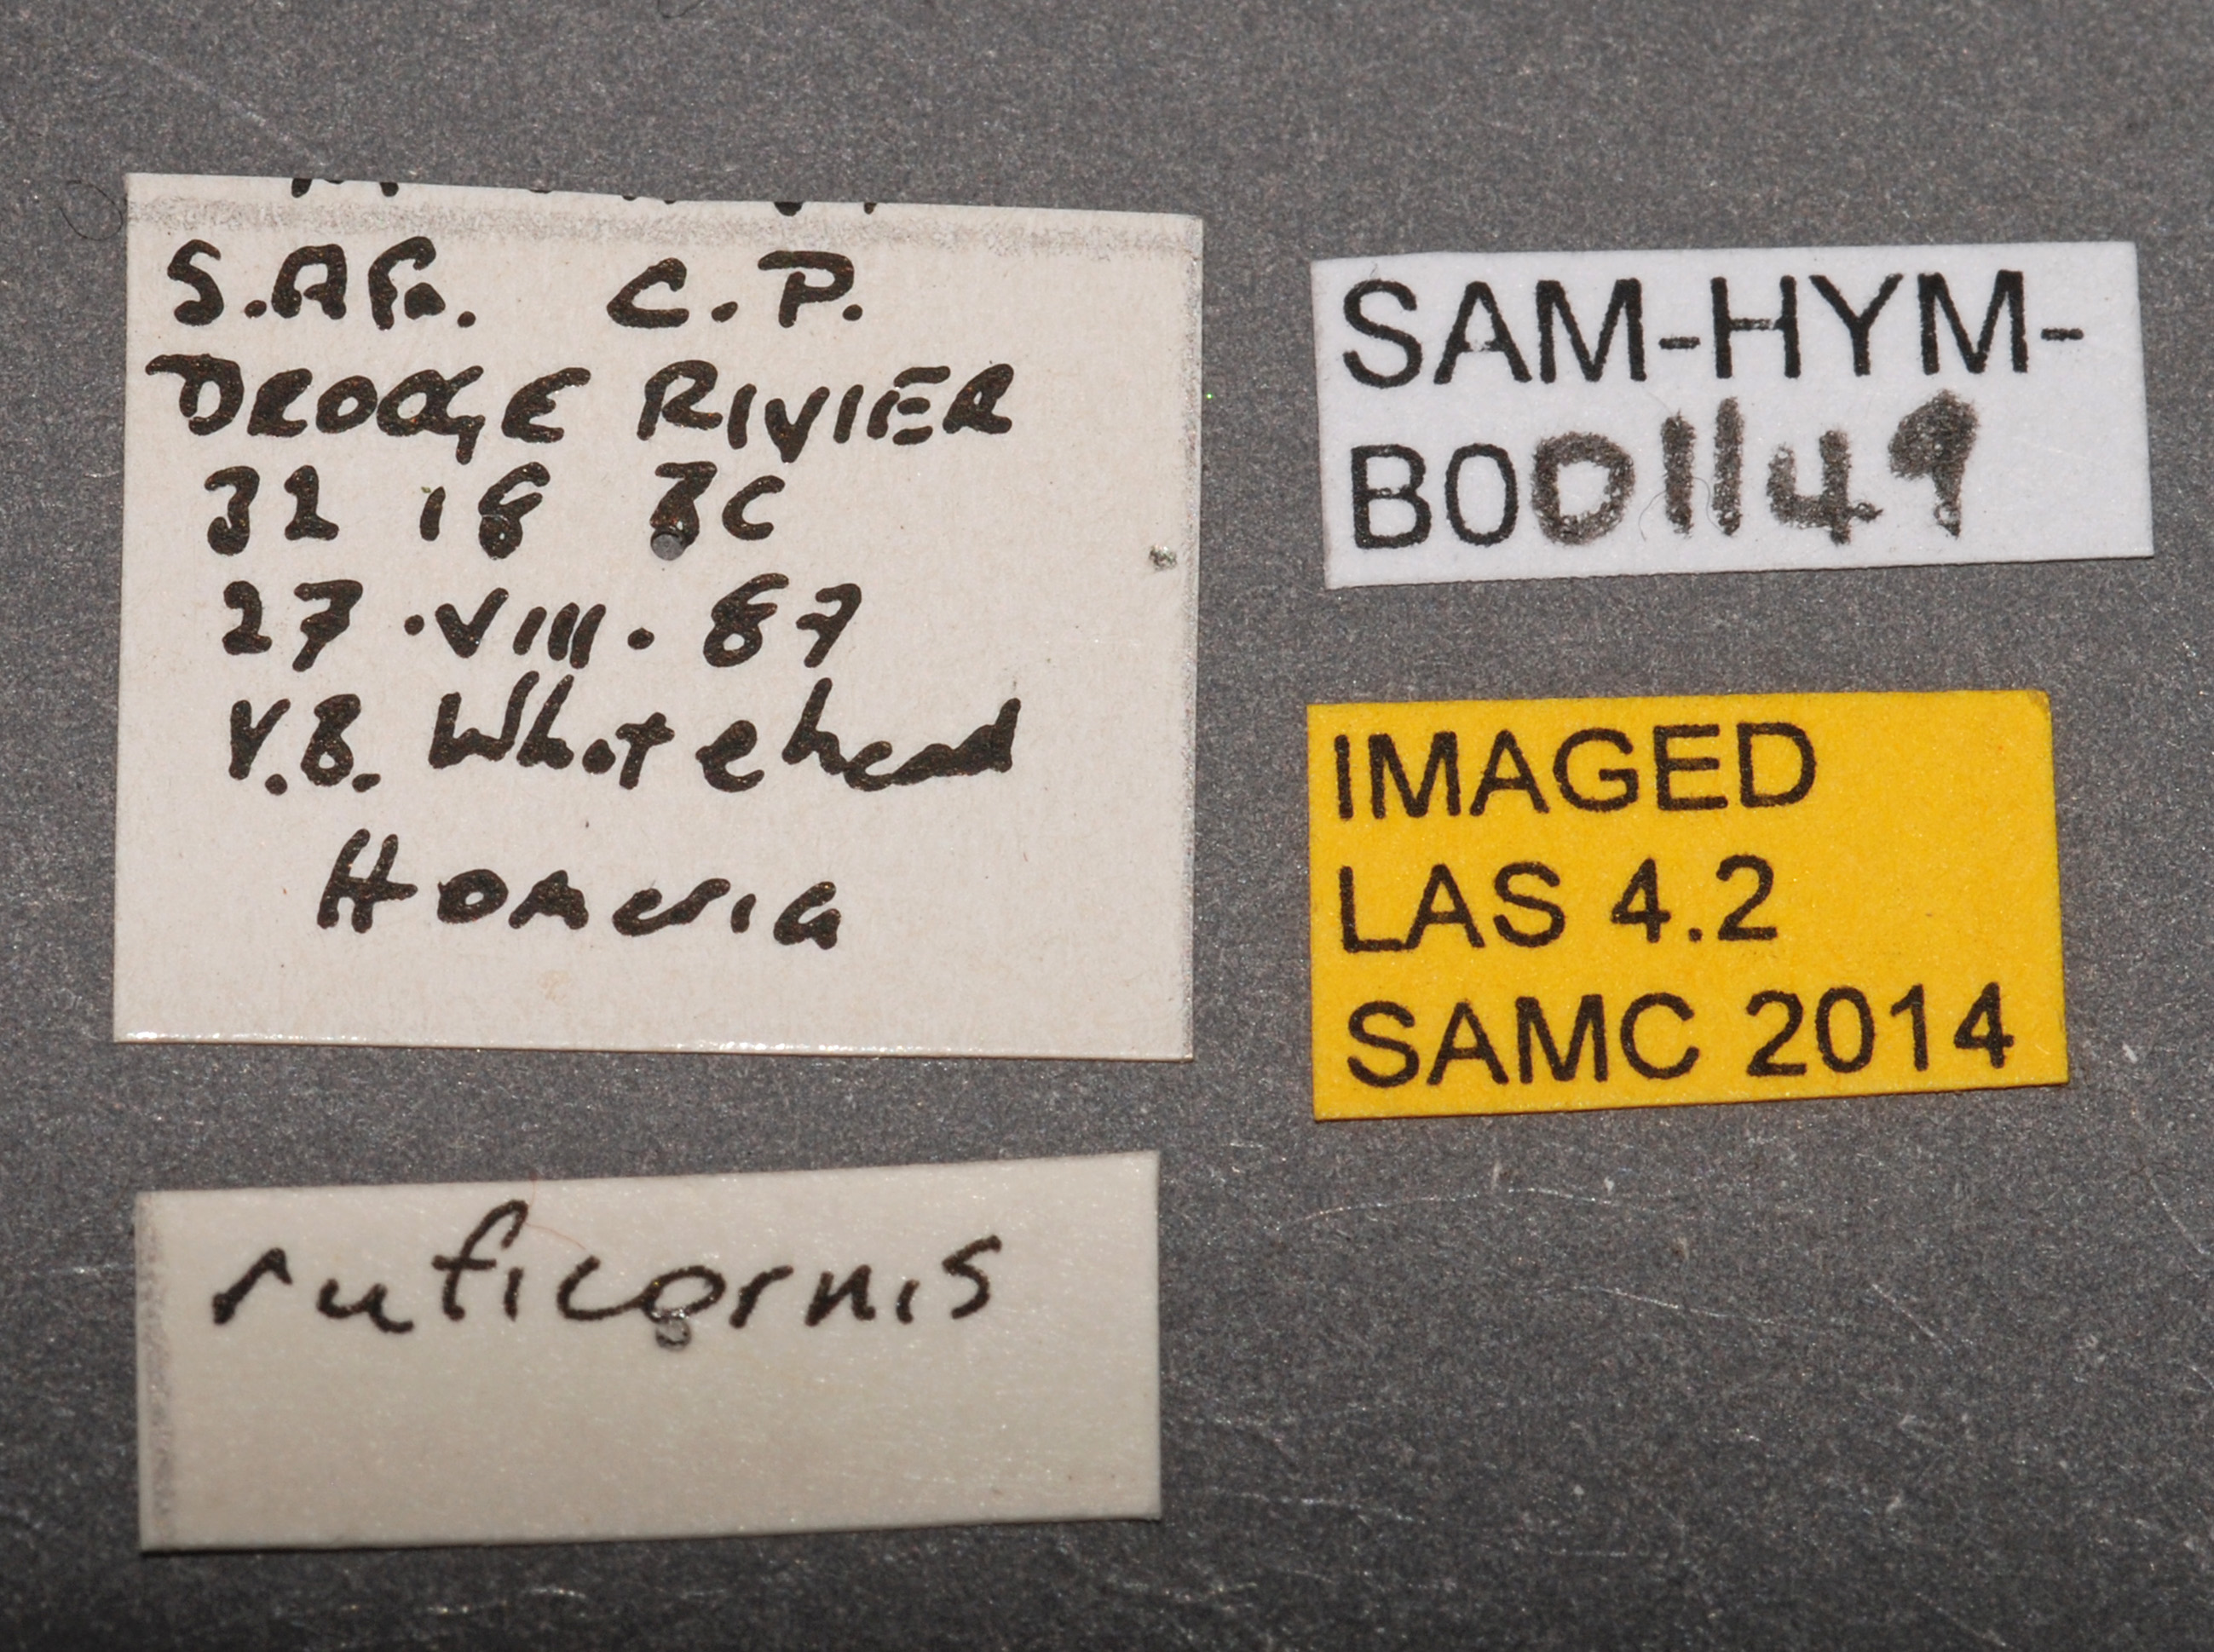 S.Afr. C.P.
DROOGE RIVIER
32 18 BC
27.VIII.87
V.B. Whitehead
Homeria
ruficornis
SAM-HYM-
B001149
IMAGED
LAS 4.2
SAMC 2014